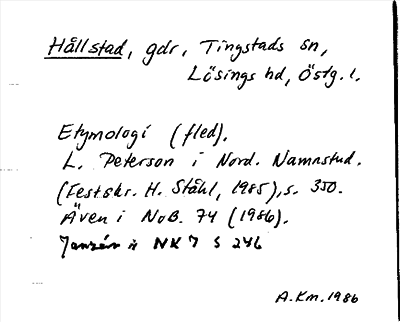 Hållstad, gdr, Tingstads sn,
Lösings hd, Östg. l.
Etymologi (fled).
L. Peterson i Nord. Namnstud.
(Festskr. H. Ståhl, 1985), s. 350.
Även i NoB. 74 (1986).
Janzén i NK 7 s 246
A.Km. 1986